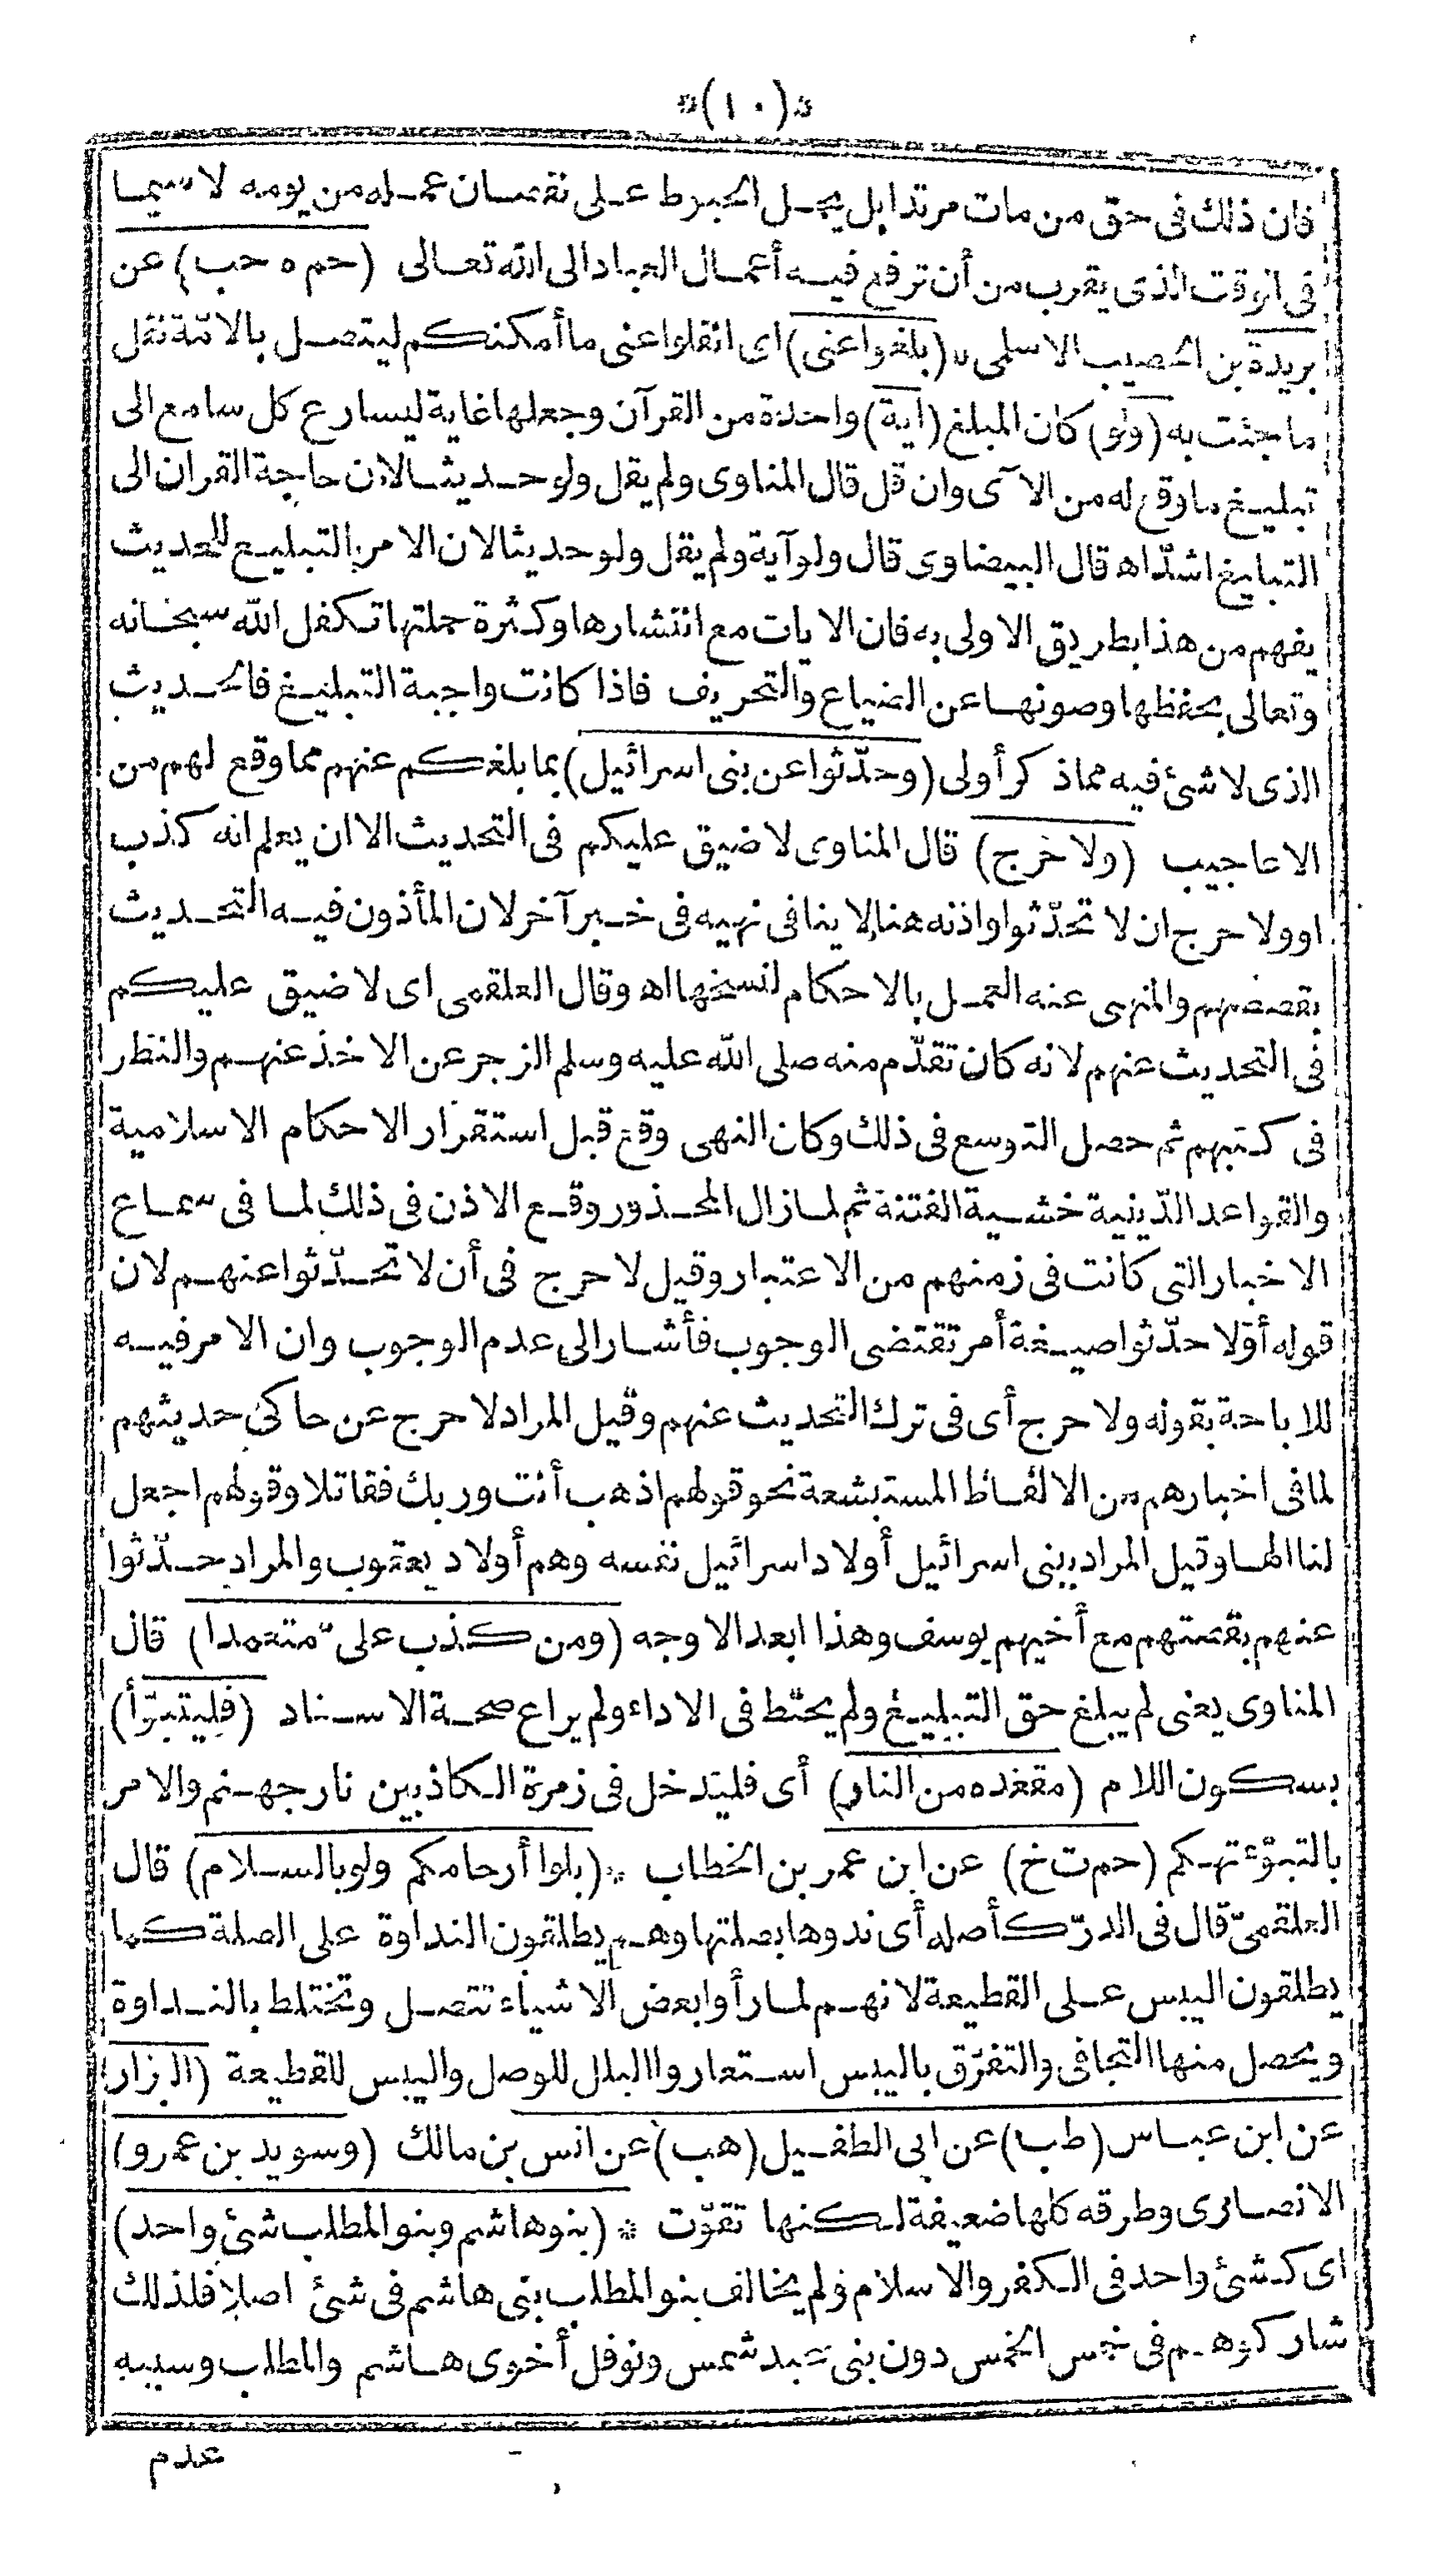 *(١٠)*
فان ذلك فى حق من مات مرتدا بل يحمل الحبوط على نقصان عمله من يومه لا سيما
فى الوقت الذى يقرب من أن ترفع فيه أعمال العباد الى الله تعالى (حم ه حب) عن
بريدة بن الحصيب الاسلمى * (بلغوا عنى) اى انقلوا عنى ما أمكنكم ليتصل بالامّة نقل
ما جئت به (ولو) كان المبلغ (آية) واحدة من القرآن وجعلها غاية ليسارع كل سامع الى
تبليغ ما وقع له من الآى وان قل قال المناوى ولم يقل ولو حديثا لان حاجة القران الى
التبليغ اشدّ اه قال البيضاوى قال ولو آية ولم يقل ولو حديثا لان الامر بالتبليغ للحديث
يفهم من هذا بطريق الاولى به فان الايات مع انتشارها وكثرة حملتها تكفل الله سبحانه
وتعالى بحفظها وصونها عن الضياع والتحريف فاذا كانت واجبة التبليغ فالحديث
الذى لا شئ فيه مما ذكر أولى (وحدّثوا عن بنى اسرائيل) بما بلغكم عنهم مما وقع لهم من
الاعاجيب (ولا حرج) قال المناوى لا ضيق عليكم فى التحديث الا ان يعلم انه كذب
او ولا حرج ان لا تحدّثوا واذنه هنا لا ينافى نهيه فى خبر آخر لان المأذون فيه التحديث
بقصصهم والمنهى عنه العمل بالاحكام لنسخها اه وقال العلقمى اى لا ضيق عليكم
فى التحديث عنهم لانه كان تقدّم منه صلى الله عليه وسلم الزجر عن الاخذ عنهم والنظر
فى كتبهم ثم حصل التوسع فى ذلك وكان النهى وقع قبل استقرار الاحكام الاسلامية
والقواعد الدّينية خشية الفتنة ثم لما زال المحذور وقع الاذن فى ذلك لما فى سماع
الاخبار التى كانت فى زمنهم من الاعتبار وقيل لا حرج فى أن لا تحدّثوا عنهم لان
قوله أوّلا حدّثوا صيغة أمر تقتضى الوجوب فأشار الى عدم الوجوب وان الامر فيه
للاباحة بقوله ولا حرج أى فى ترك التحديث عنهم وقيل المراد لا حرج عن حاكى حديثهم
لما فى اخبارهم من الالفاظ المستبشعة نحو قولهم اذهب أنت وربك فقاتلا وقولهم اجعل
لنا الها وقيل المراد ببنى اسرائيل أولاد اسرائيل نفسه وهم أولاد يعقوب والمراد حدّثوا
عنهم بقصتهم مع أخيهم يوسف وهذا ابعد الاوجه (ومن كذب علىّ متعمدا) قال
المناوى يعنى لم يبلغ حق التبليغ ولم يحتط فى الاداء ولم يراع صحة الاسناد (فليتبوّأ)
بسكون اللام (مقعده من النار) أى فليدخل فى زمرة الكاذبين نار جهنم والامر
بالتبوّء تهكم (حم ت خ) عن ابن عمر بن الخطاب * (بلوا أرحامكم ولو بالسلام) قال
العلقمىّ قال فى الدرّ كأصله أى ندوها بصلتها وهم يطلقون النداوة على الصلة كما
يطلقون اليبس على القطيعة لانهم لما رأوا بعض الاشياء تتصل وتختلط بالنداوة
ويحصل منها التجافى والتفرّق باليبس استعاروا البلل للوصل واليبس للقطيعة (البزار)
عن ابن عباس (طب) عن ابى الطفيل (هب) عن انس بن مالك (وسويد بن عمرو)
الانصارى وطرقه كلها ضعيفة لكنها تقوّت * (بنو هاشم وبنو المطلب شئ واحد)
اى كشئ واحد فى الكفر والاسلام ولم يخالف بنو المطلب بنى هاشم فى شئ اصلا فلذلك
شاركوهم فى خمس الخمس دون بنى عبد شمس ونوفل أخوى هاشم والمطلب وسببه
عدم